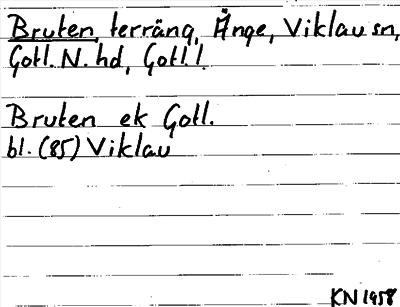 Bruten, terräng, Änge, Viklau sn,
Gotl. N. hd, Gotl. l.
Bruten ek Gotl.
bl. (85) Viklau
KN 1958